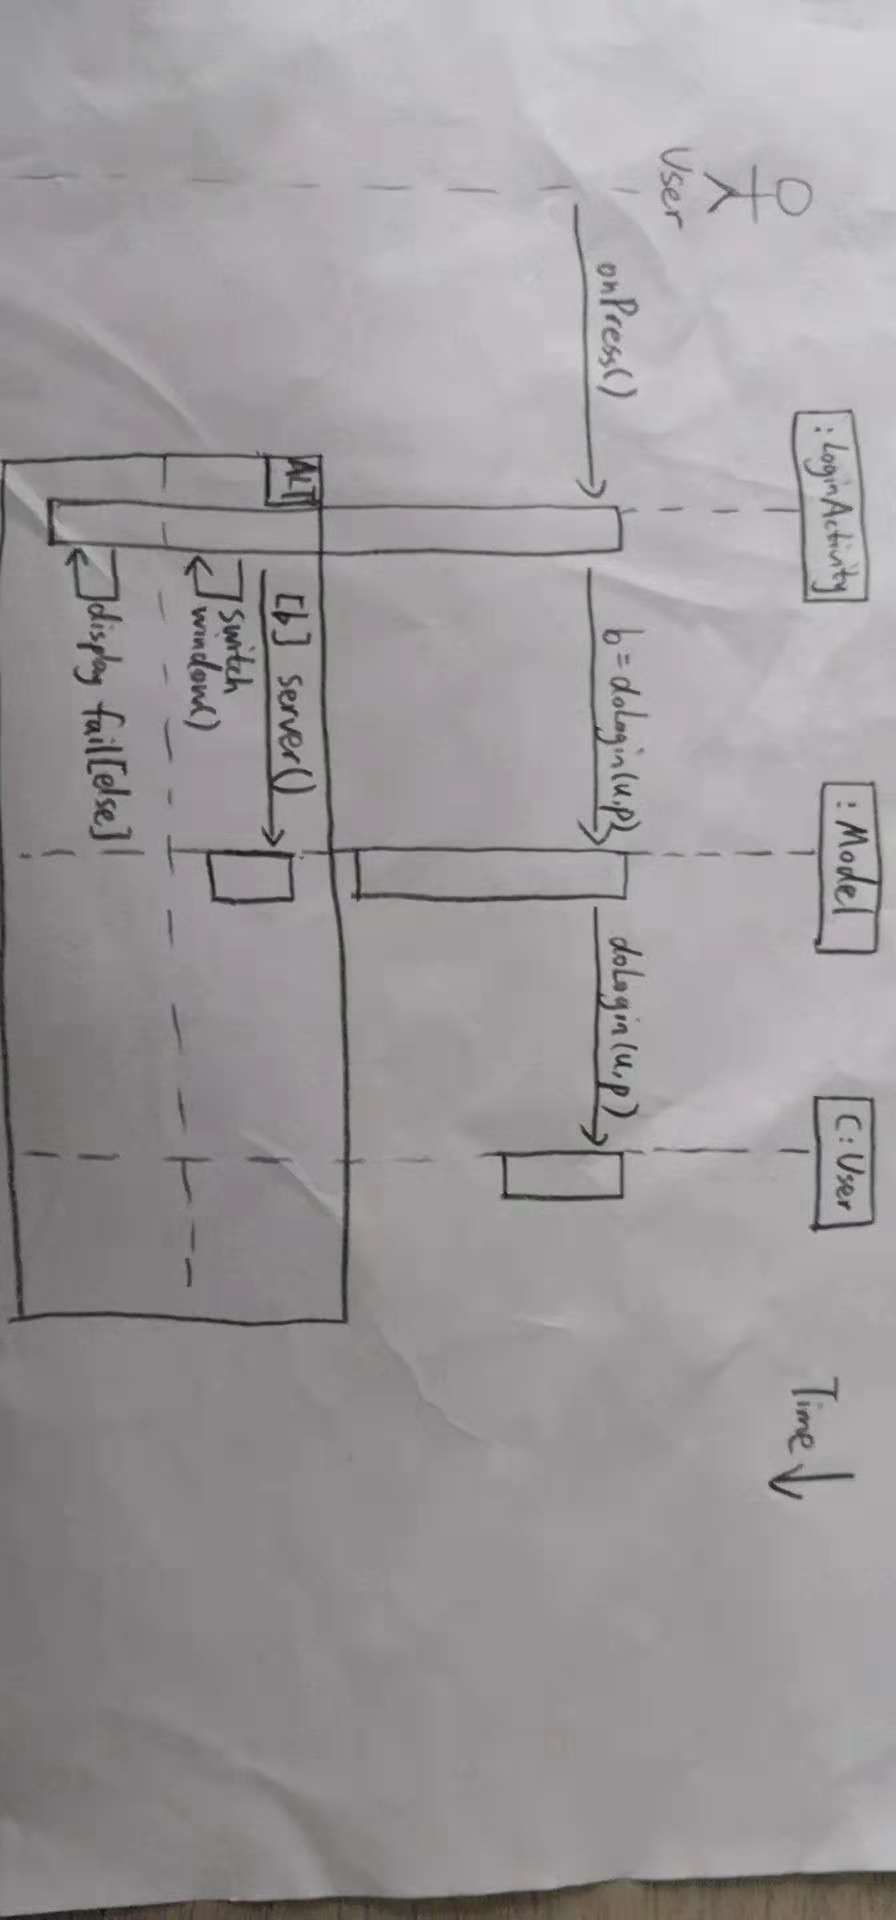 User
:LoginActivity
:Model
C:User
Time
onPress()
b=doLogin(u,p)
doLogin(u,p)
ALT
[b] server()
switch
window()
display fail[else]